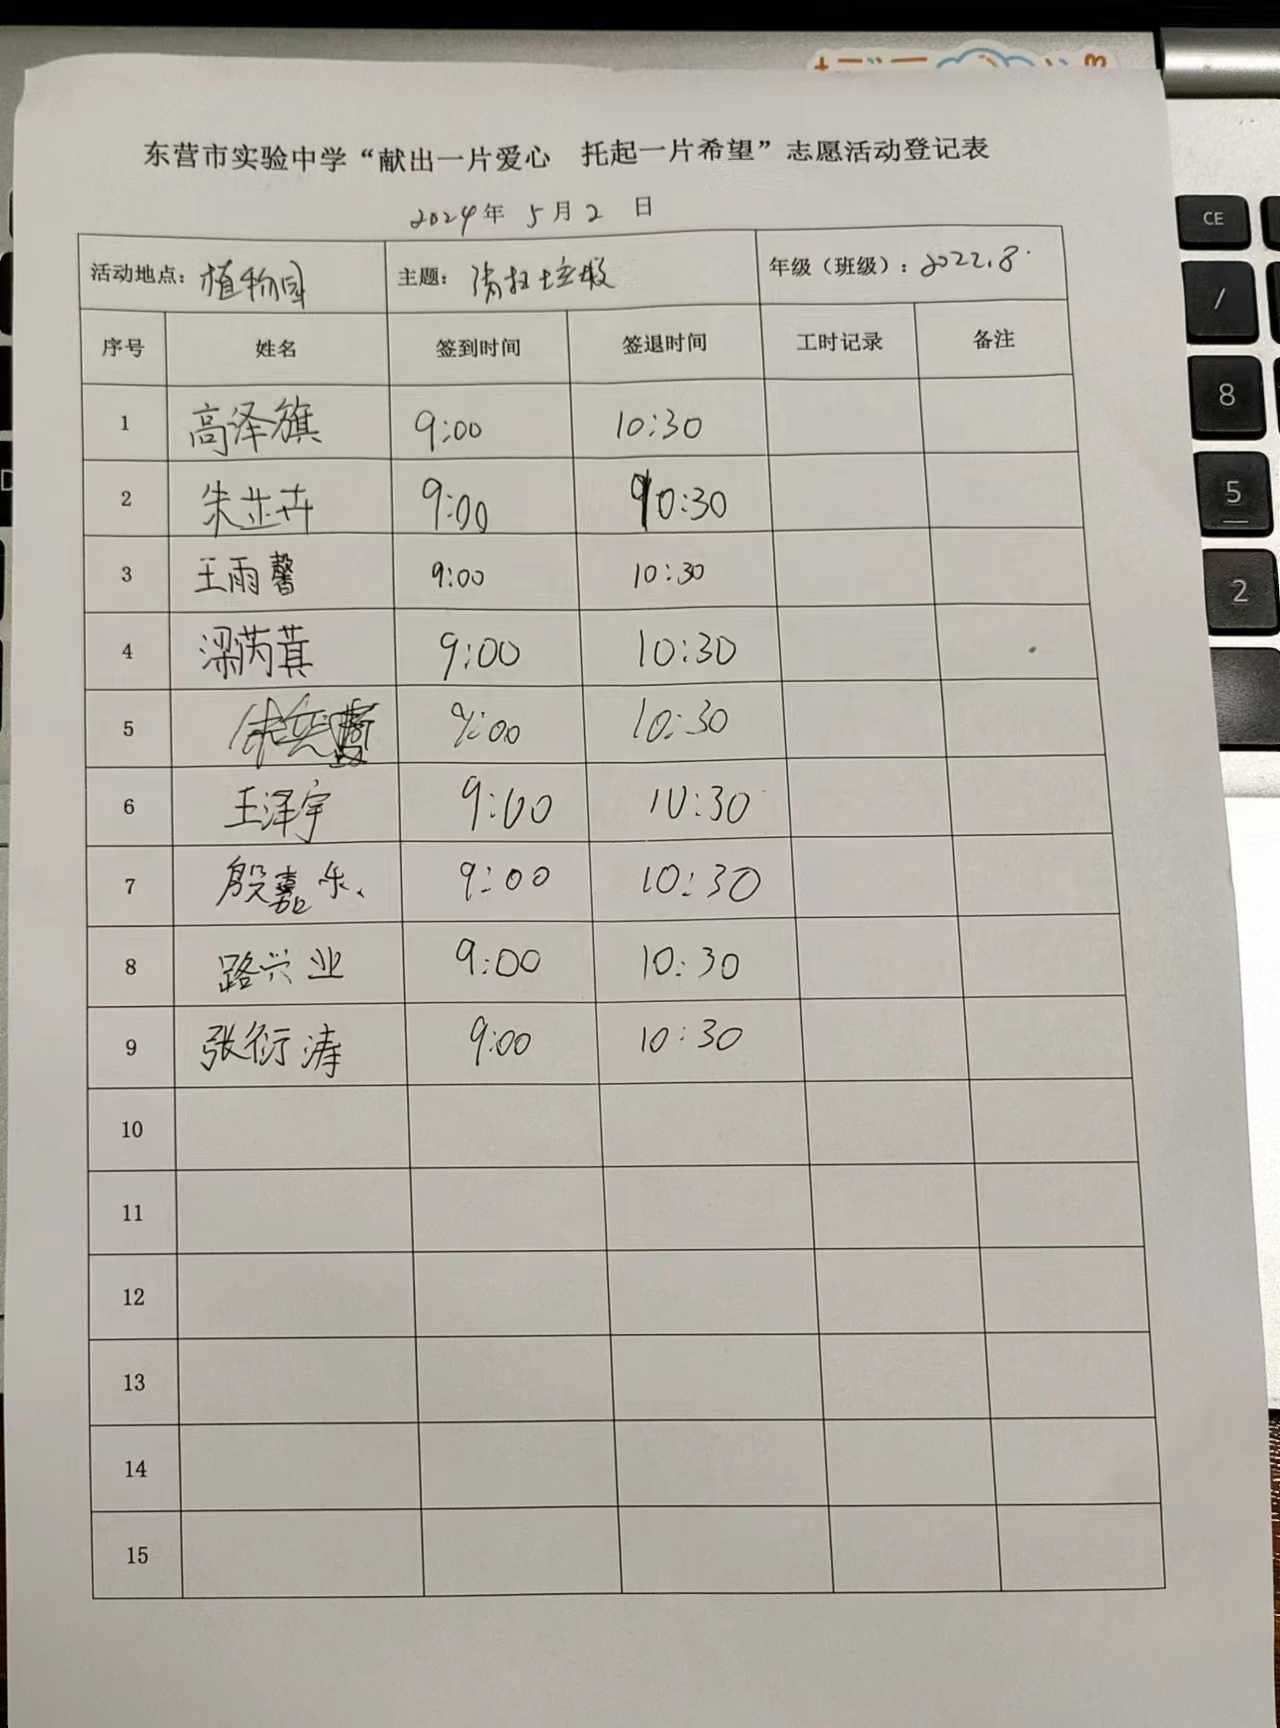 东营市实验中学“献出一片爱心 托起一片希望”志愿活动登记表
2024年 5月2 日
活动地点：植物园 主题：清扫垃圾 年级（班级）：2022.8
序号 姓名 签到时间 签退时间 工时记录 备注
1 高泽旗 9:00 10:30
2 朱芷卉 9:00 10:30
3 王雨馨 9:00 10:30
4 梁芮萁 9:00 10:30
5 9:00 10:30
6 王泽宇 9:00 10:30
7 殷嘉乐 9:00 10:30
8 路兴业 9:00 10:30
9 张衍涛 9:00 10:30
10
11
12
13
14
15
CE
/
8
5
2